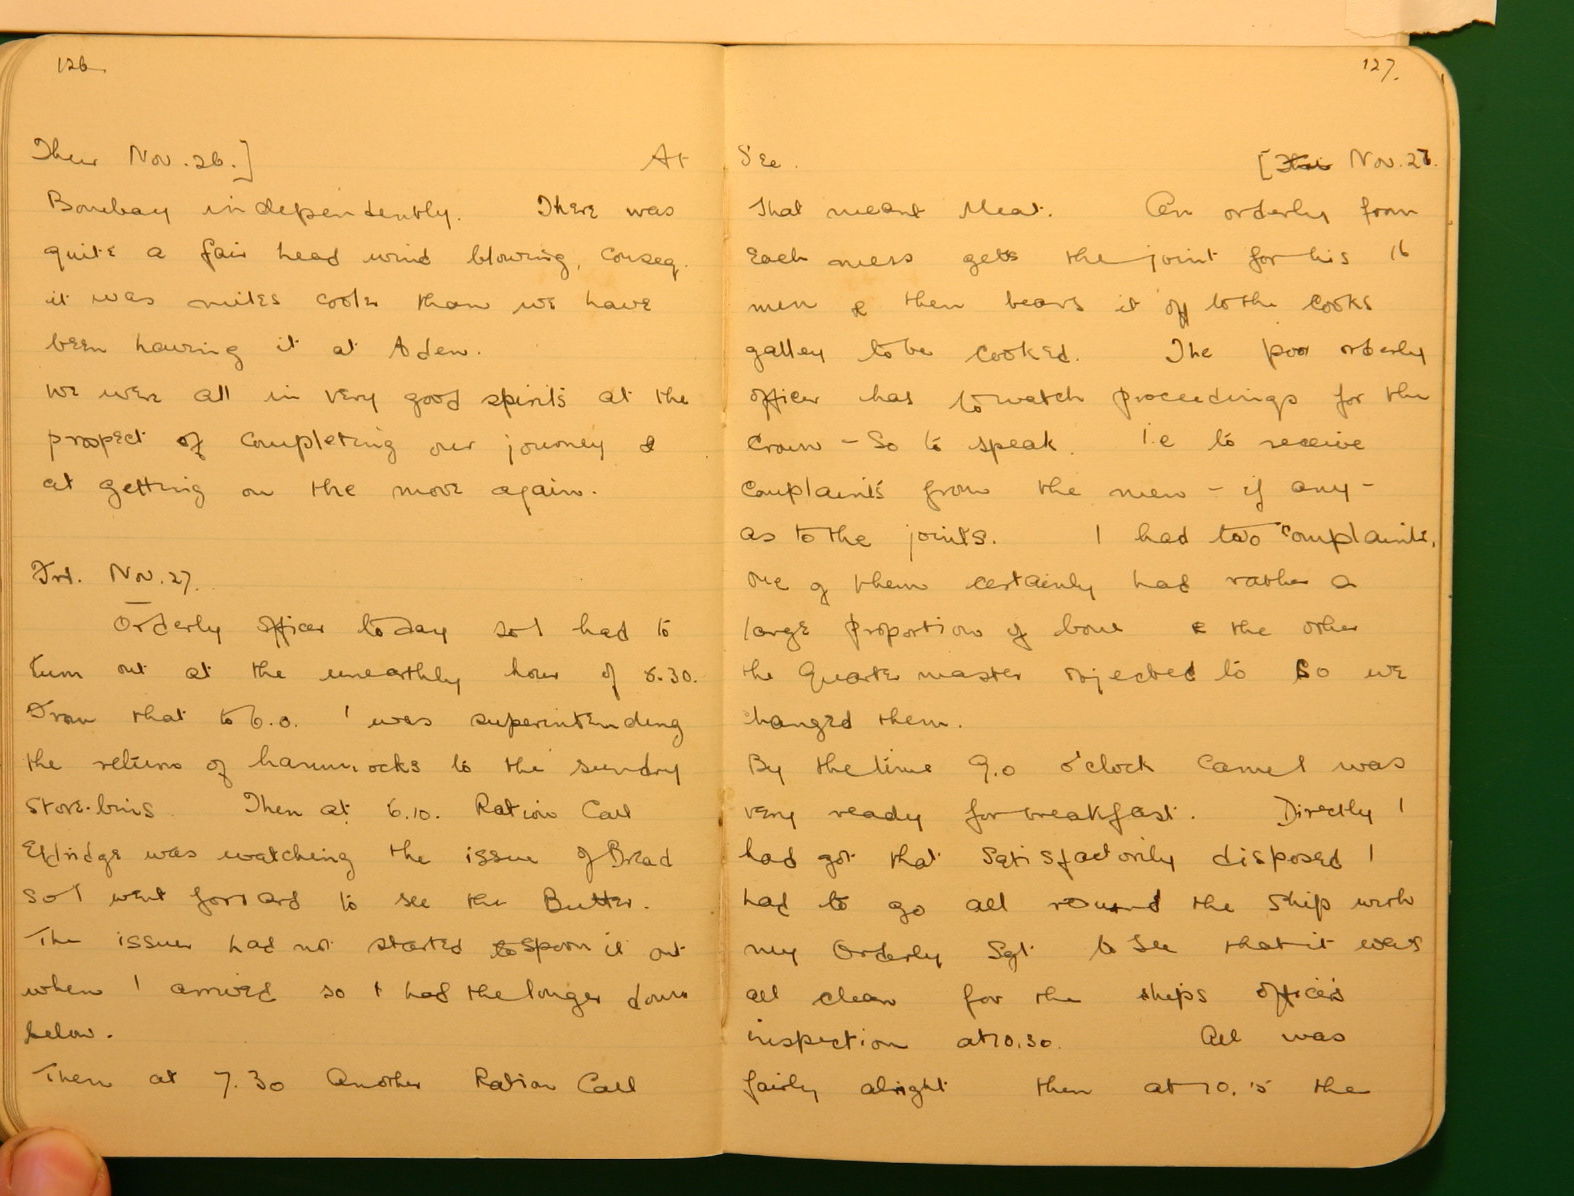 126.
Thur Nov. 26.] At
Bombay independently. There was
quite a fair head wind blowing, conseq.
it was miles cooler than we have
been having it at Aden.
We were all in very good spirits at the
prospect of completing our journey &
at getting on the move again.
Frd. Nov. 27.
Orderly officer today so I had to
turn out at the unearthly hour of 5.30.
From that to 6.0. I was superintending
the return of hammocks to the sundry
store-bins. Then at 6.10. Ration Call
Eldridge was watching the issue of Bread
so I went forward to see the Butter.
The issuer had not started to spoon it out
when I arrived so I had the longer down
below.
Then at 7.30 Another Ration Call
127.
Sea. [Nov. 27.
that meant Meat. An orderly from
each mess gets the joint for his 16
men & then bears it off to the cooks
galley to be cooked. The poor orderly
officer has to watch proceedings for the
Crown - So to speak. i.e to receive
complaints from the men - if any -
as to the joints. I had two complaints,
one of them certainly had rather a
large proportion of bone & the other
the Quarter master objected to so we
changed them.
By the time 9.0 o'clock came I was
very ready for breakfast. Directly I
had got that satisfactorily disposed I
had to go all round the ship with
my Orderly Sgt to see that it was
all clean for the ships officers
inspection at 10.30. All was
fairly alright then at 10.15 the